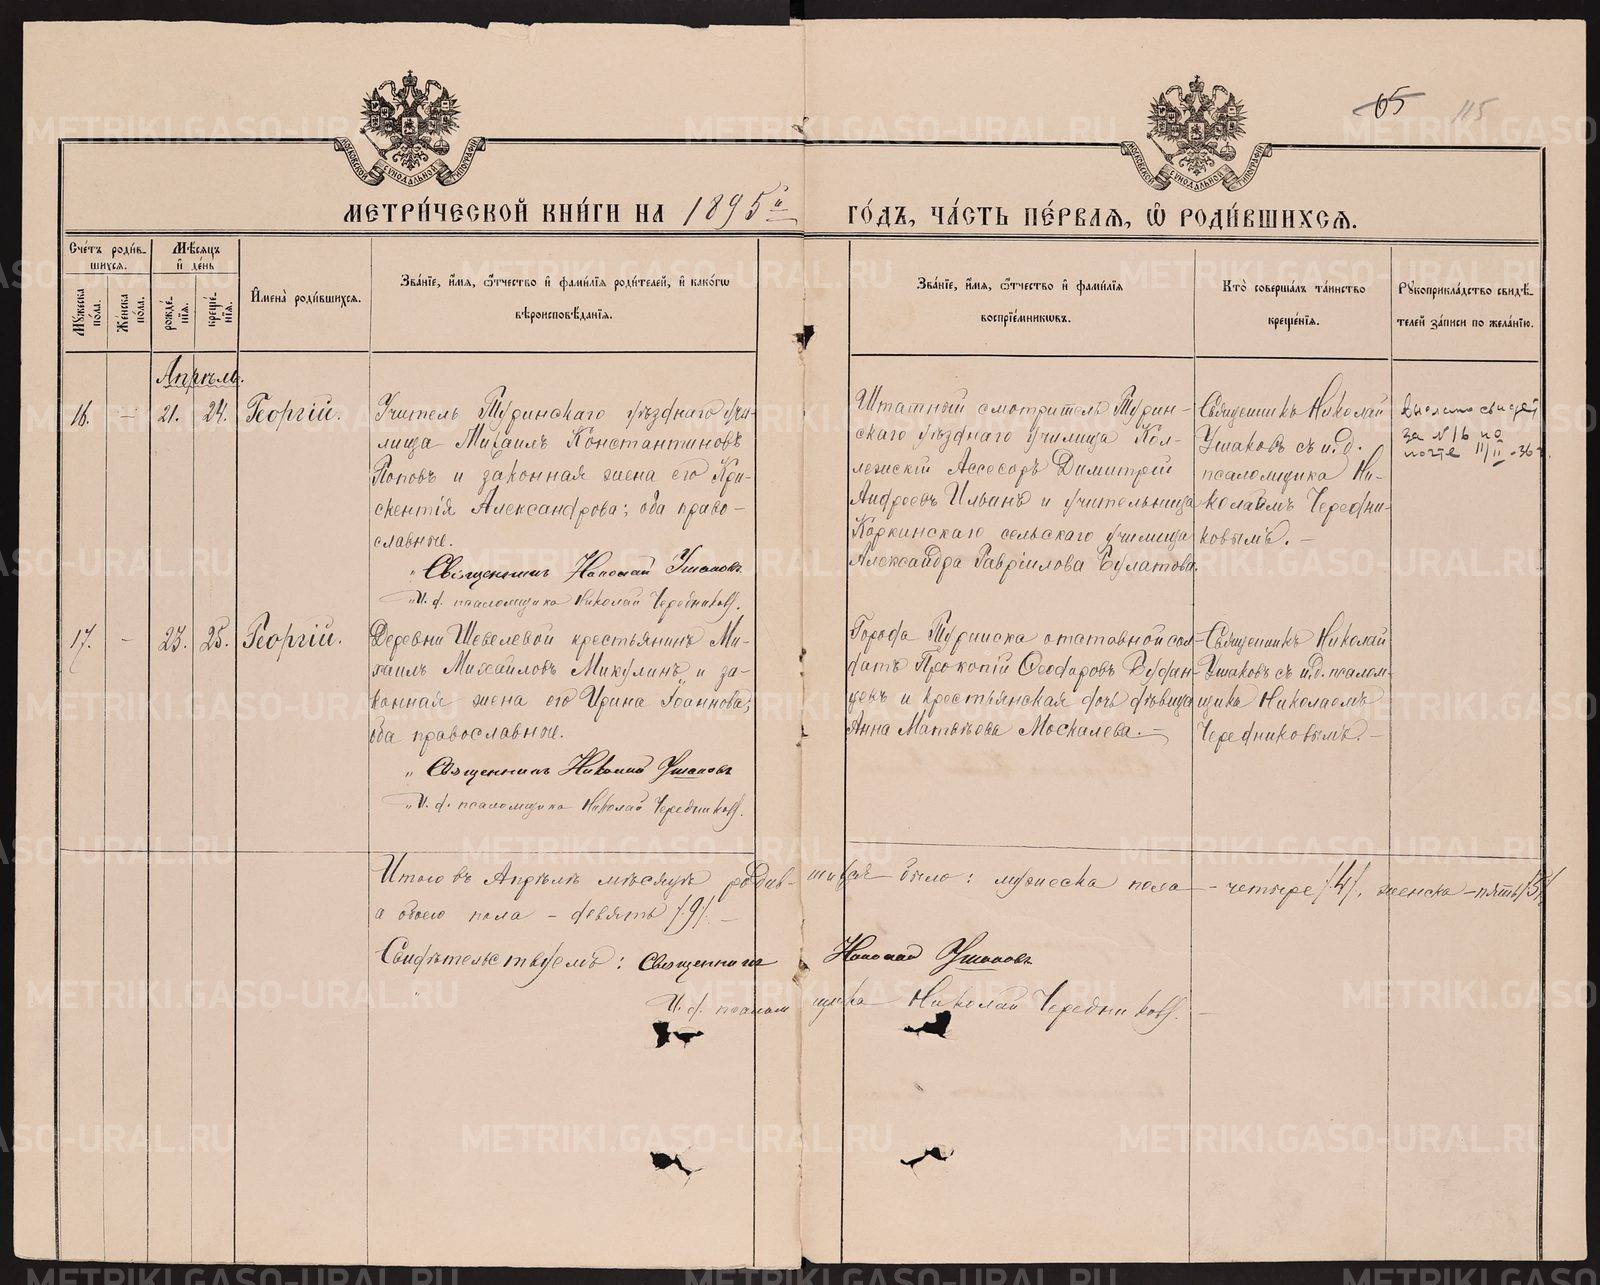 65 115
МОСКОВСКОЙ СѴНОДАЛЬНОЙ ТИПОГРАФІИ
МОСКОВСКОЙ СѴНОДАЛЬНОЙ ТИПОГРАФІИ
МЕТРИ́ЧЕСКОЙ КНИ́ГИ НА 1895й ГО́ДЪ, ЧА́СТЬ ПЕ́РВАѦ, Ѿ РОДИ́ВШИХСѦ.
Сче́тъ роди́в-
шихсѧ.
Мѣ́сѧцъ
и҆ де́нь
Мꙋжеска
пола.
Же́нска
по́ла.
рожде́-
нїѧ.
креще́-
нїѧ.
И҆мена̀ роди́вшихсѧ.
Зва́нїе, и҆́мѧ, ѻ҆́тчество и҆ фами́лїѧ роди́телей, и҆ како́гѡ
вѣроисповѣ́данїѧ.
Зва́нїе, и҆́мѧ, ѻ҆́тчество и҆ фами́лїѧ
воспрїе́мникѡвъ.
Кто̀ соверша́лъ та́инство
креще́нїѧ.
Рꙋкоприкла́дство свидѣ́-
телей за́писи по жела́нїю.
Апрѣль.
16. – 21. 24. Георгій.
Учитель Туринскаго уѣзднаго Учи-
лища Михаилъ Константиновъ
Поповъ и законная жена его Кри-
скентія Александрова; оба право-
славные.
Священникъ Николай Ушаковъ
И. д. псаломщика Николай Чередниковъ.
Штатный смотритель Турин-
скаго уѣзднаго училища Кол-
лежскій Ассесоръ Димитрій
Андреевъ Ильинъ и учительница
Коркинскаго сельскаго училища
Александра Гавріилова Булатова.
Священникъ Николай
Ушаковъ съ и. д.
псаломщика Ни-
колаемъ Чередни-
ковымъ. –
Выслано свидет
за N 16 по
почте 11/II-36 г.
17. – 23. 25. Георгій.
Деревни Шевелевой крестьянинъ Ми-
хаилъ Михайловъ Микулинъ и за-
конная жена его Ирина Іоаннова;
оба православные.
Священникъ Николай Ушаковъ
И. д. псаломщика Николай Чередниковъ.
Города Туринска отставной сол-
датъ Прокопій Феодоровъ
и крестьянская дочь дѣвица
Анна Матвѣева Москалева. –
Священникъ Николай
Ушаковъ съ и. д. псалом-
щика Николаемъ
Чередниковымъ. –
Итого въ Апрѣлѣ мѣсяцѣ родив-шихся было: мужеска пола – четыре /4/, женска – пять /5/
а обоего пола – девять /9/. –
Свидѣтельствуемъ: Священникъ Николай Ушаковъ
И. д. псаломщика Николай Чередниковъ. –
METRIKI.GASO-URAL.RU